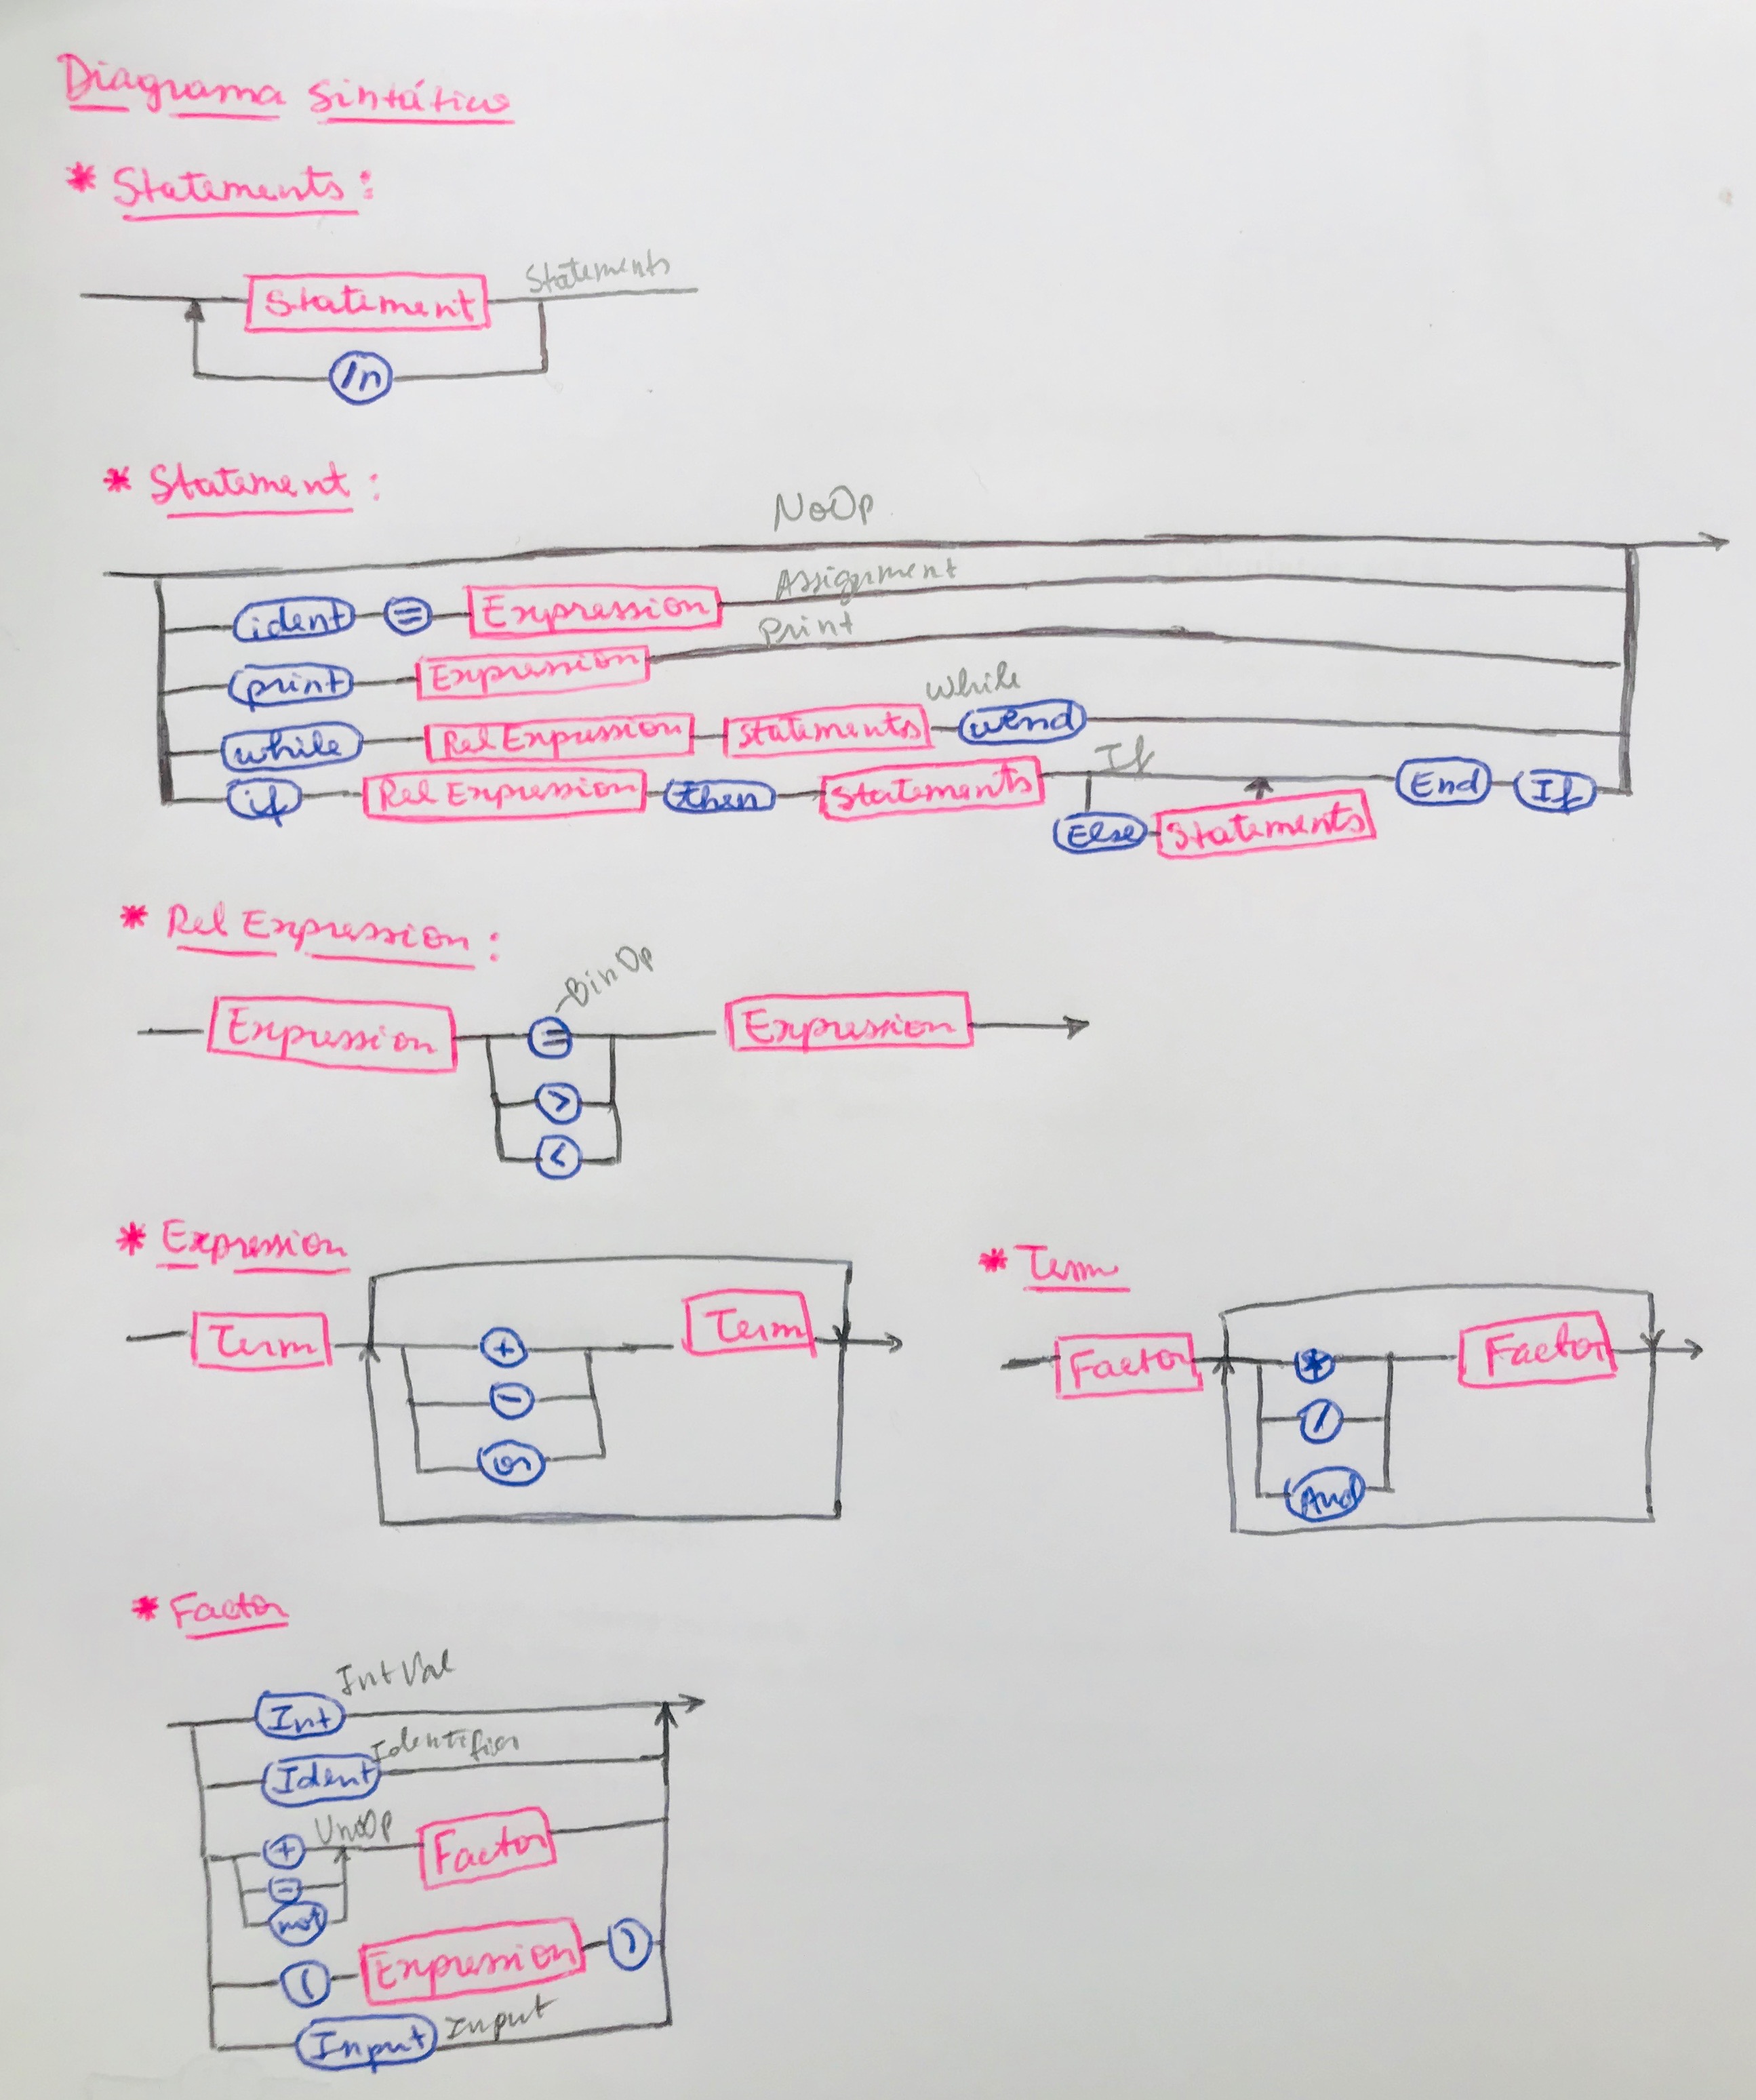 Diagrama Sintático
* Statements:
Statements
Statement
/n
* Statement:
NoOp
Assignment
ident = Expression
Print
print Expression
While
while Rel Expression Statements wend
If
if Rel Expression then Statements End If
Else Statements
* Rel Expression:
BinOp
Expression = Expression
>
<
* Expression
Term + Term
-
or
* Term
Factor * Factor
/
And
* Factor
IntVal
Int
Identifier
Ident
UnoOp
+ Factor
-
not
( Expression )
Input Input